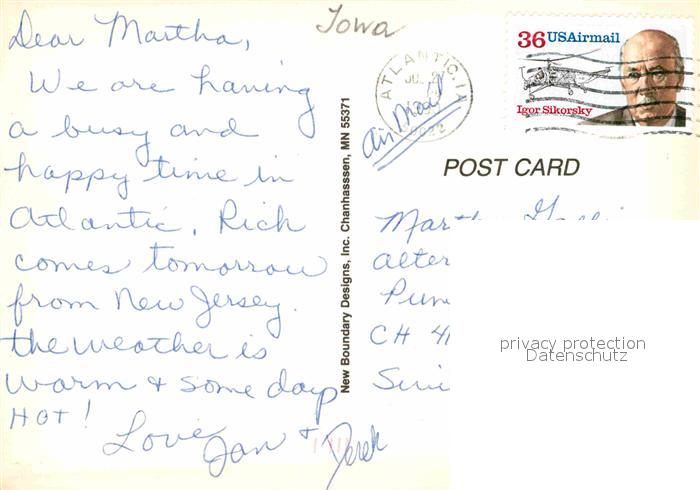 Dear Martha,
We are having
a busy and
happy time in
Atlantic. Rich
comes tomorrow
from New Jersey.
the weather is
warm & some days
HOT!
Love,
Jan & Derek
Iowa
ATLANTIC, IA
Air Mail
36 USAirmail
Igor Sikorsky
POST CARD
New Boundary Designs, Inc. Chanhasssen, MN 55371
CH
privacy protection
Datenschutz